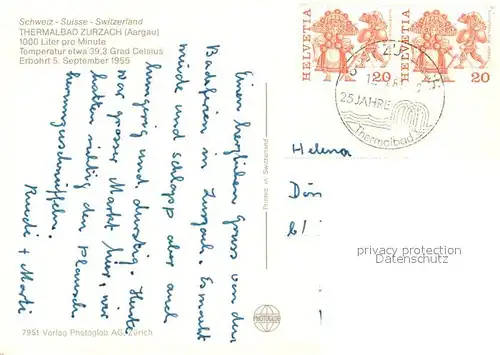 Schweiz - Suisse - Switzerland
THERMALBAD ZURZACH (Aargau)
1000 Liter pro Minute
Temperatur etwa 39,3 Grad Celsius
Erbohrt 5. September 1955
Einen herzlichen Gruss von den
Badeferien in Zurzach. Es macht
müde und schlapp aber auch
hungrig und durstig. Heute
war grosser Markt hier, wir
hatten richtig den Plausch
herumzuschnüffeln.
Ruedi + Marti
7951 Verlag Photoglob AG, Zürich
Printed in Switzerland
PHOTOGLOB
HELVETIA 20
HELVETIA 20
25 JAHRE
Thermalbad
Helena
privacy protection
www.ansichtskartenhandel.de